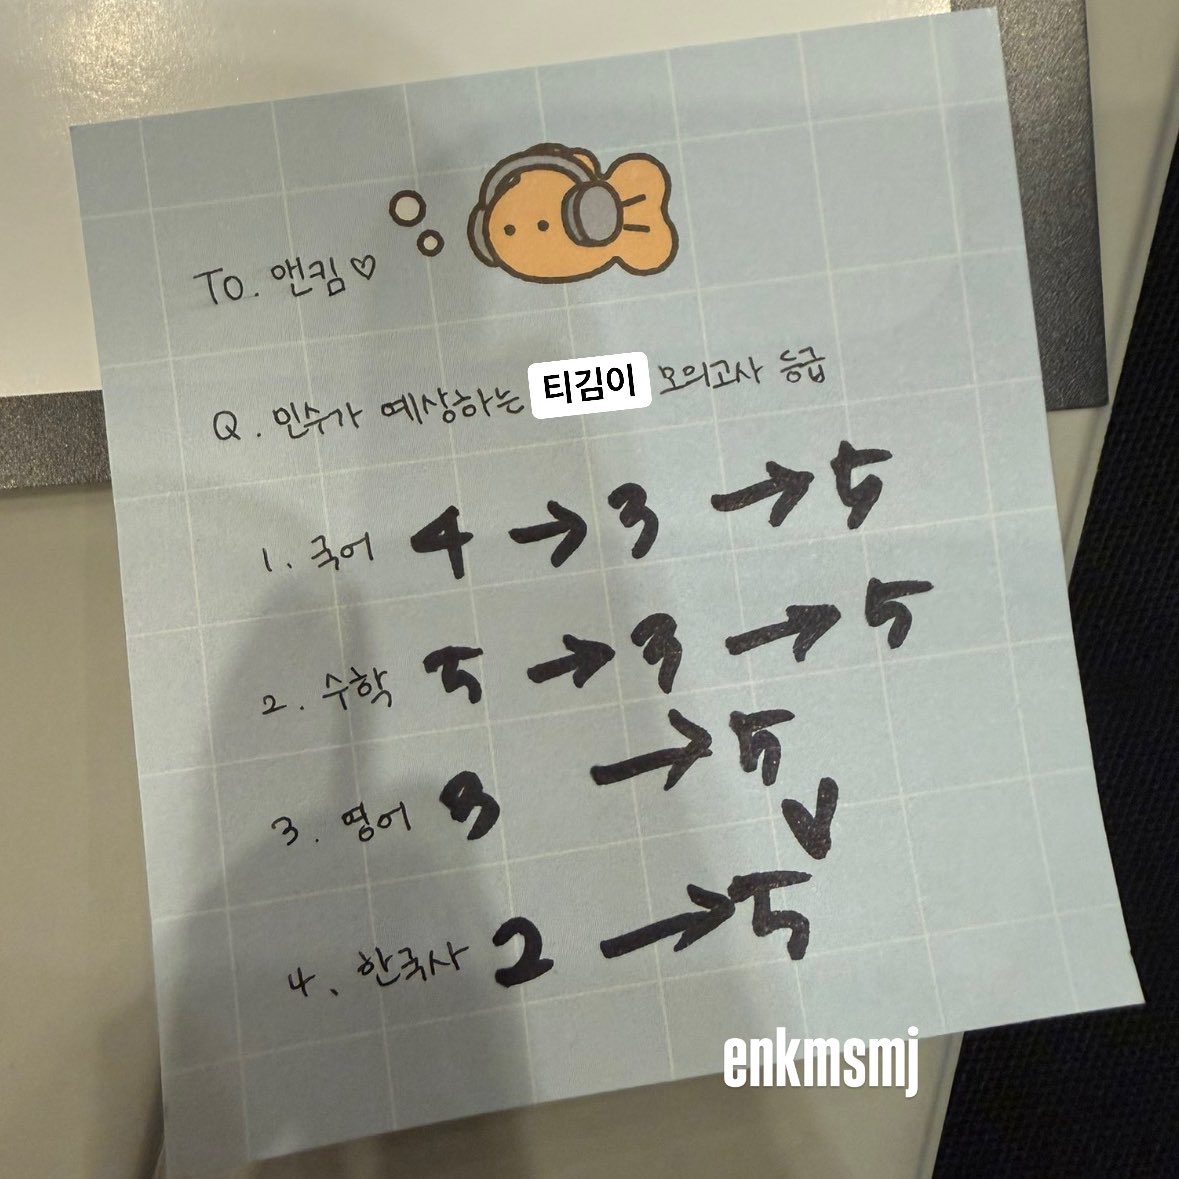 To. 앤킴♡
Q. 민수가 예상하는 티김이 모의고사 등급
1. 국어 4 → 3 → 5
2. 수학 5 → 3 → 5
3. 영어 3 → 5
4. 한국사 2 → 5
enkmsmj